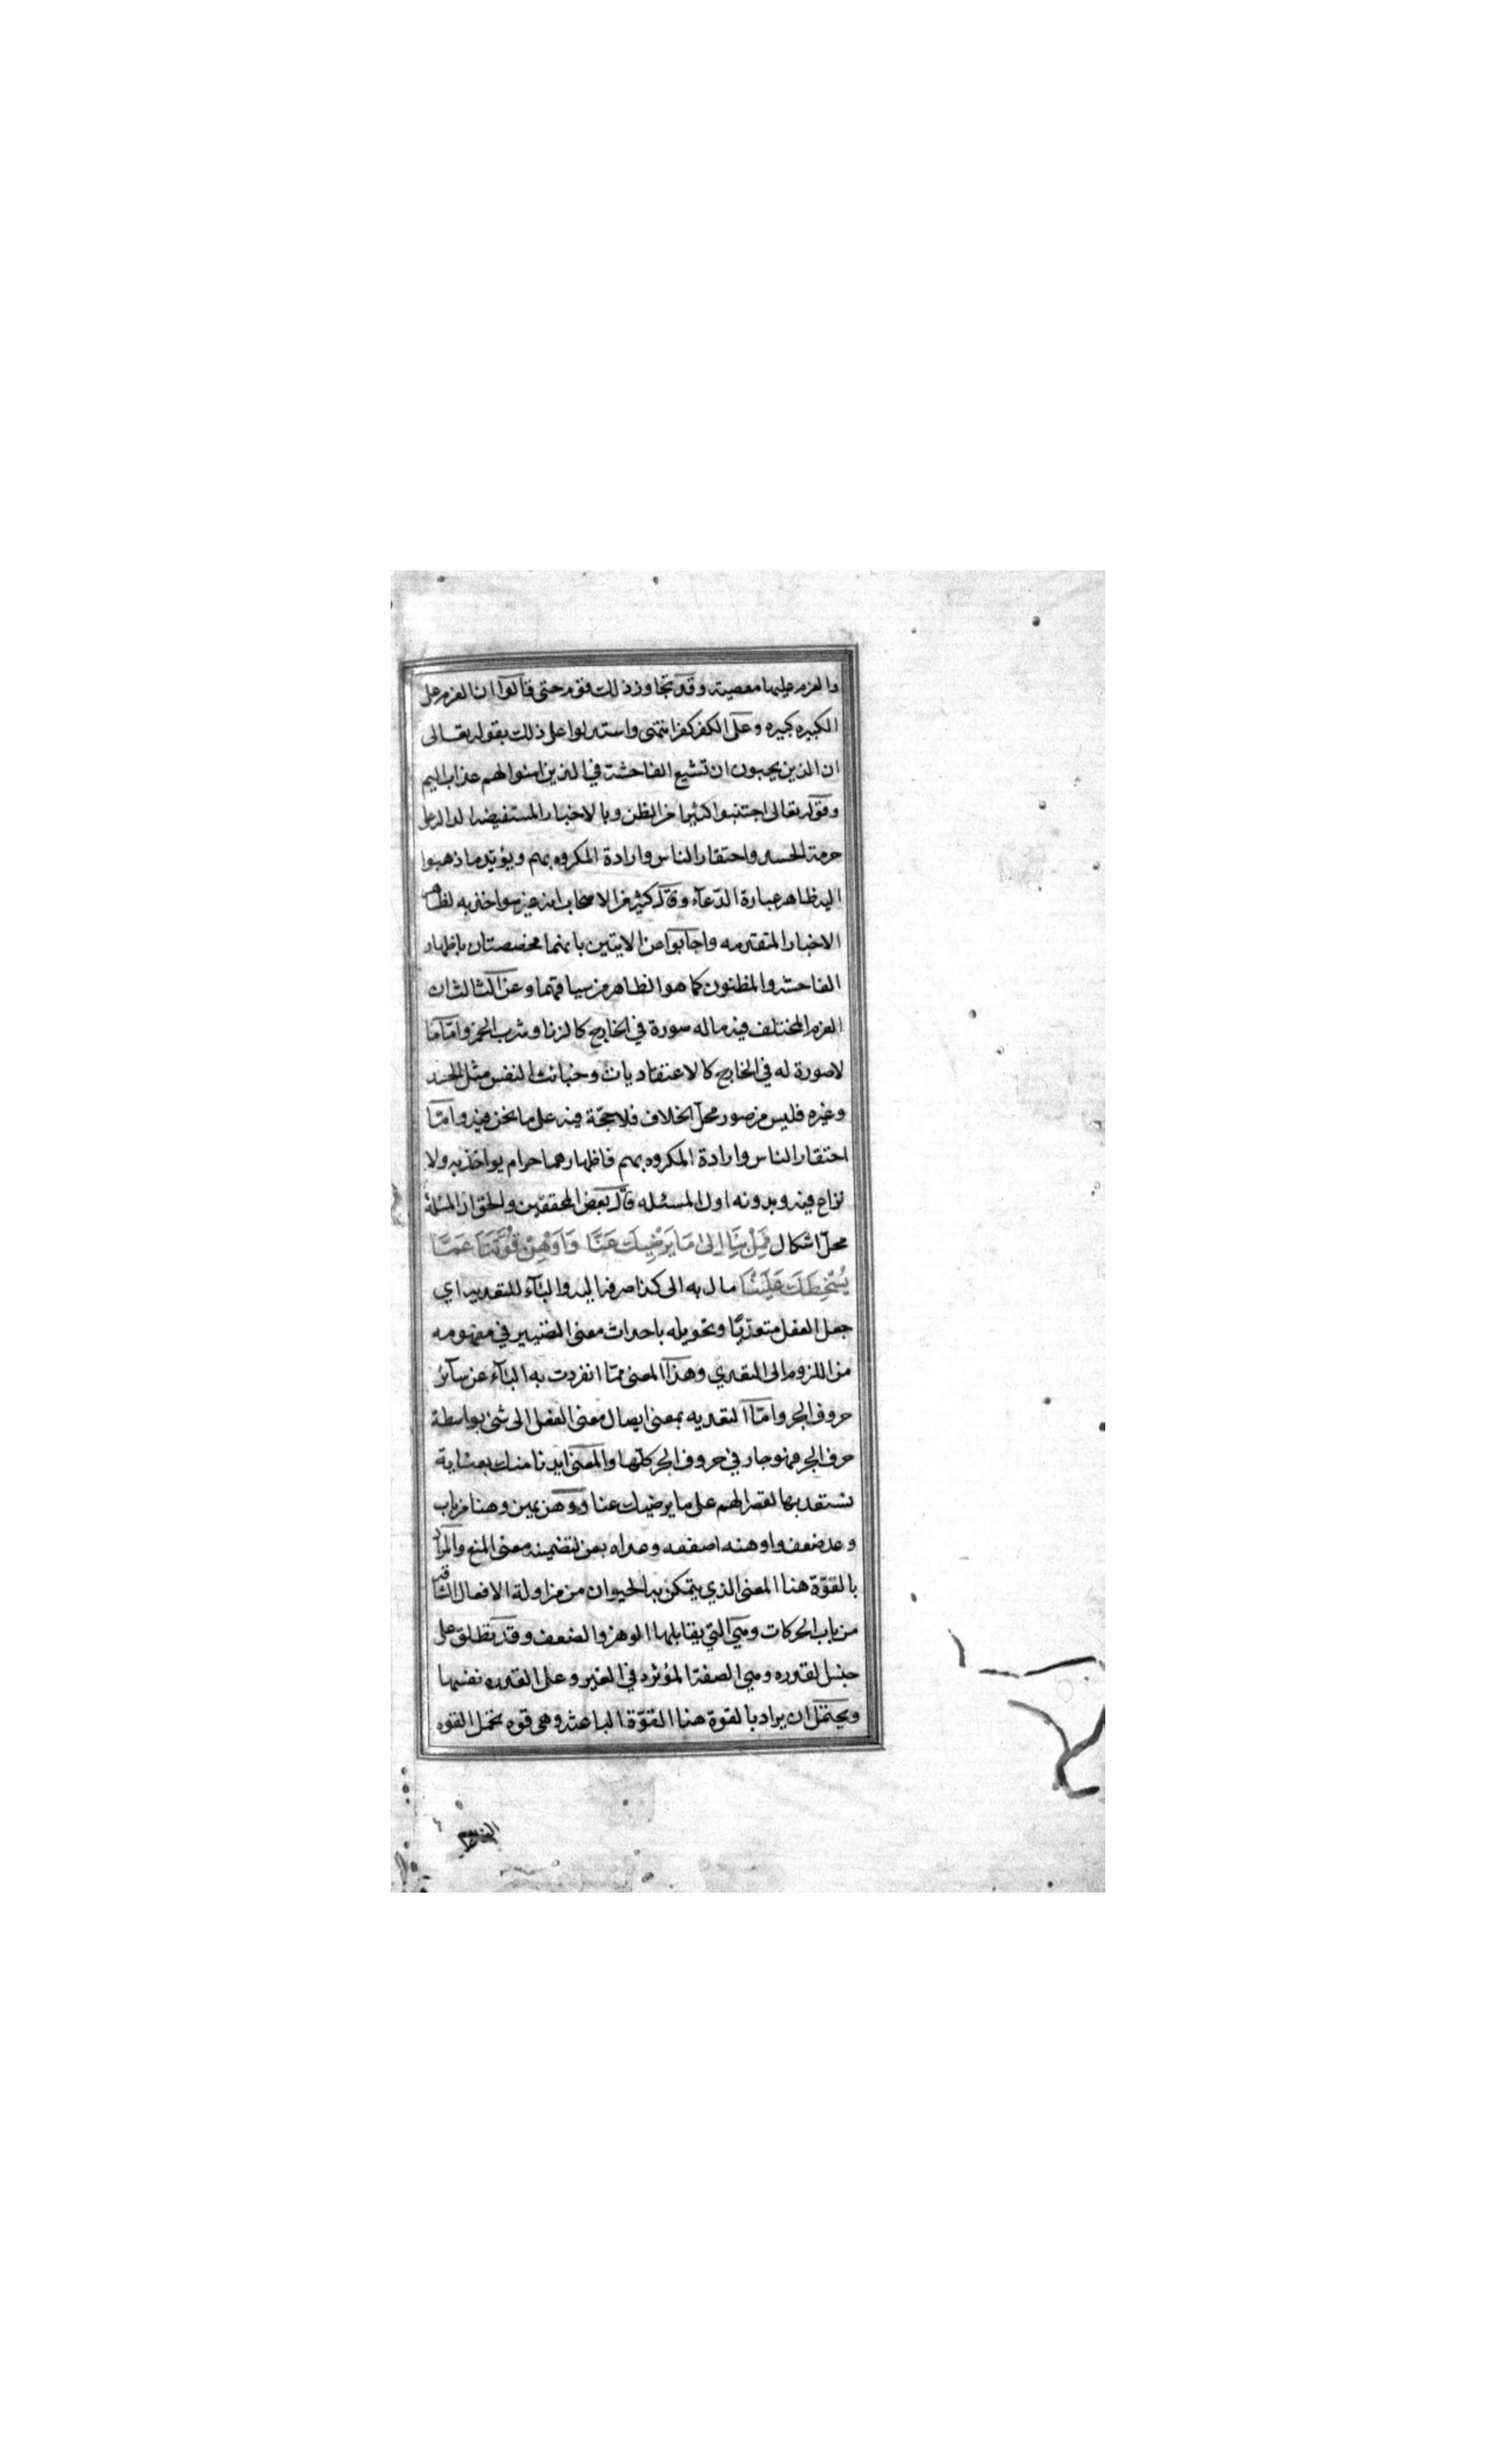 والعزم عليها معصية وقد تجاوز ذلك قوم حتى قالوا ان العزم على
الكبيره كبيره وعلى الكفر كفر انتهى واستدلوا على ذلك بقوله تعالى
ان الذين يحبون ان تشيع الفاحشة في الذين امنوا لهم عذاب اليم
وقوله تعالى اجتنبوا كثيرا من الظن وبالاخبار المستفيضه الداله على
حرمة الحسد واحتقار الناس وارادة المكروه بهم ويؤيد ما ذهبوا
اليه ظاهر عبارة الدعآء وقال كثير من الاصحاب انه غير مواخذ به لظاهر
الاخبار المتقدمه واجابوا عن الايتين بانهما مخصصتان باظهار
الفاحشه والمظنون كما هو الظاهر من سياقهما وعن الثالث ان
العزم المختلف فيه ماله صورة في الخارج كالزنا وشرب الخمر واما ما
لا صورة له في الخارج كالاعتقاديات وخبائث النفس مثل الحسد
وغيره فليس من صور محل الخلاف فلا حجة فيه على ما نحن فيه واما
احتقار الناس وارادة المكروه بهم فاظهارهما حرام يواخذ به ولا
نزاع فيه وبدونه اول المسئله قال بعض المحققين والحق ان المسئلة
محل اشكال فَمِلْ بِنَا اِلىٰ مَا يُرْضِيكَ عَنَّا وَاَوْهِنْ قُوَّتَنَا عَمَّا
يُسْخِطُكَ عَلَيْنَا مال به الى كذا صرفه اليه والباء للتعديه اي
جعل الفعل متعديا وتحويله باحداث معنى التصيير في مفهومه
من اللزوم الى التعدي وهذا المعنى مما انفردت به البآء عن سآئر
حروف الجر واما التعديه بمعنى ايصال معنى الفعل الى شئ بواسطة
حرف الجر فهو جار في حروف الجر كلها والمعنى ايدنا منك بعناية
نستعد بها لقصر الهم على ما يرضيك عنا ووهن يهن وهنا من باب
وعد ضعف واوهنه اضعفه وعداه بعن لتضمينه معنى المنع والمراد
بالقوة هنا المعنى الذي يتمكن به الحيوان من مزاولة الافعال الشاقه
من باب الحركات وهي التي يقابلها الوهن والضعف وقد تطلق على
جنس القدره وهي الصفة المؤثره في الغير وعلى القدره نفسها
ويحتمل ان يراد بالقوة هنا القوة الباعثه وهي قوه تحمل القوه